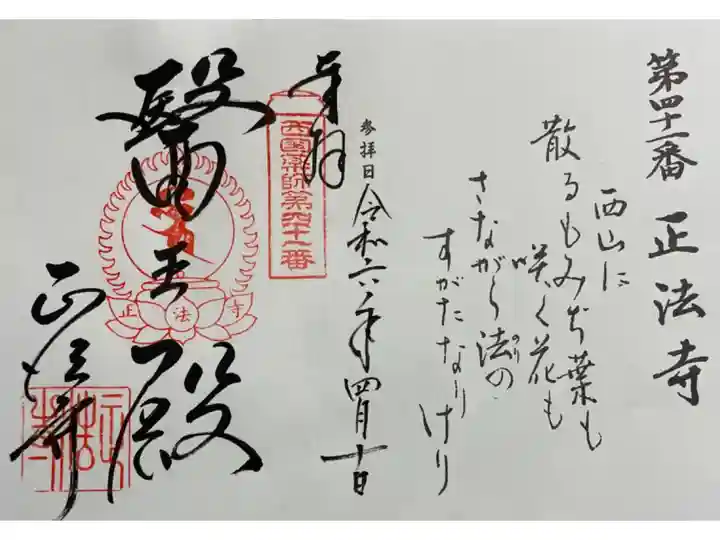 第四十一番 正法寺
西山に
散るもみぢ葉も
咲く花も
さながら法の
のり
すがたなり
けり
参拝日 令和六年四月十日
奉拝
西國薬師第四十一番
醫王殿
正法寺
正法寺